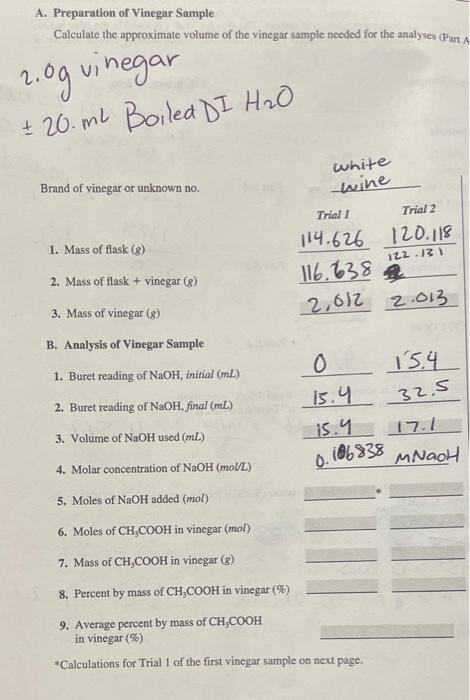 A. Preparation of Vinegar Sample
Calculate the approximate volume of the vinegar sample needed for the analyses (Part A
2.0g vinegar
± 20. mL Boiled DI H2O
Brand of vinegar or unknown no. white wine
Trial 1 Trial 2
1. Mass of flask (g) 114.626 120.118
2. Mass of flask + vinegar (g) 116.638 122.131
3. Mass of vinegar (g) 2.012 2.013
B. Analysis of Vinegar Sample
1. Buret reading of NaOH, initial (mL) 0 15.4
2. Buret reading of NaOH, final (mL) 15.4 32.5
3. Volume of NaOH used (mL) 15.4 17.1
4. Molar concentration of NaOH (mol/L) 0.106838 MNaOH
5. Moles of NaOH added (mol) *
6. Moles of CH₃COOH in vinegar (mol)
7. Mass of CH₃COOH in vinegar (g)
8. Percent by mass of CH₃COOH in vinegar (%)
9. Average percent by mass of CH₃COOH
in vinegar (%)
*Calculations for Trial 1 of the first vinegar sample on next page.